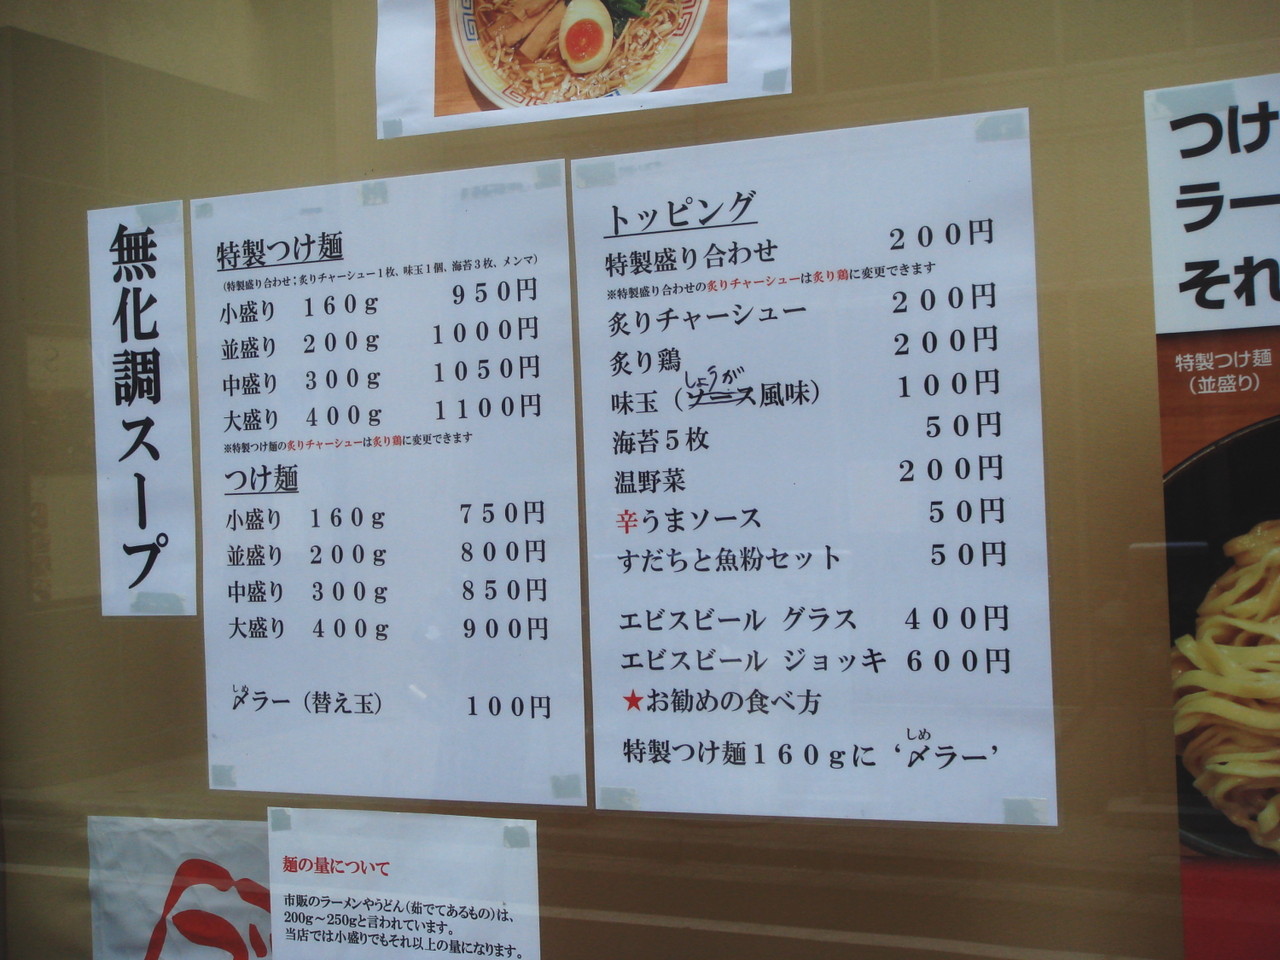 無化調スープ
特製つけ麺
（特製盛り合わせ；炙りチャーシュー１枚、味玉１個、海苔３枚、メンマ）
小盛り １６０ｇ ９５０円
並盛り ２００ｇ １０００円
中盛り ３００ｇ １０５０円
大盛り ４００ｇ １１００円
※特製つけ麺の炙りチャーシューは炙り鶏に変更できます
つけ麺
小盛り １６０ｇ ７５０円
並盛り ２００ｇ ８００円
中盛り ３００ｇ ８５０円
大盛り ４００ｇ ９００円
しめ
〆ラー（替え玉） １００円
トッピング
特製盛り合わせ ２００円
※特製盛り合わせの炙りチャーシューは炙り鶏に変更できます
炙りチャーシュー ２００円
炙り鶏 ２００円
しょうが
味玉（ソース風味） １００円
海苔５枚 ５０円
温野菜 ２００円
辛うまソース ５０円
すだちと魚粉セット ５０円
エビスビール グラス ４００円
エビスビール ジョッキ ６００円
★お勧めの食べ方
しめ
特製つけ麺１６０ｇに ‘〆ラー’
つけ
ラー
それ
特製つけ麺
（並盛り）
麺の量について
市販のラーメンやうどん（茹でてあるもの）は、
200g～250gと言われています。
当店では小盛りでもそれ以上の量になります。